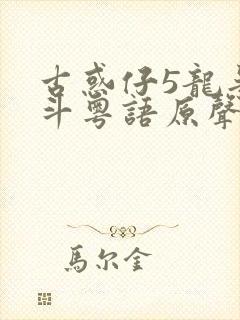 古惑仔5龍
斗粵語原聲
馬尔金